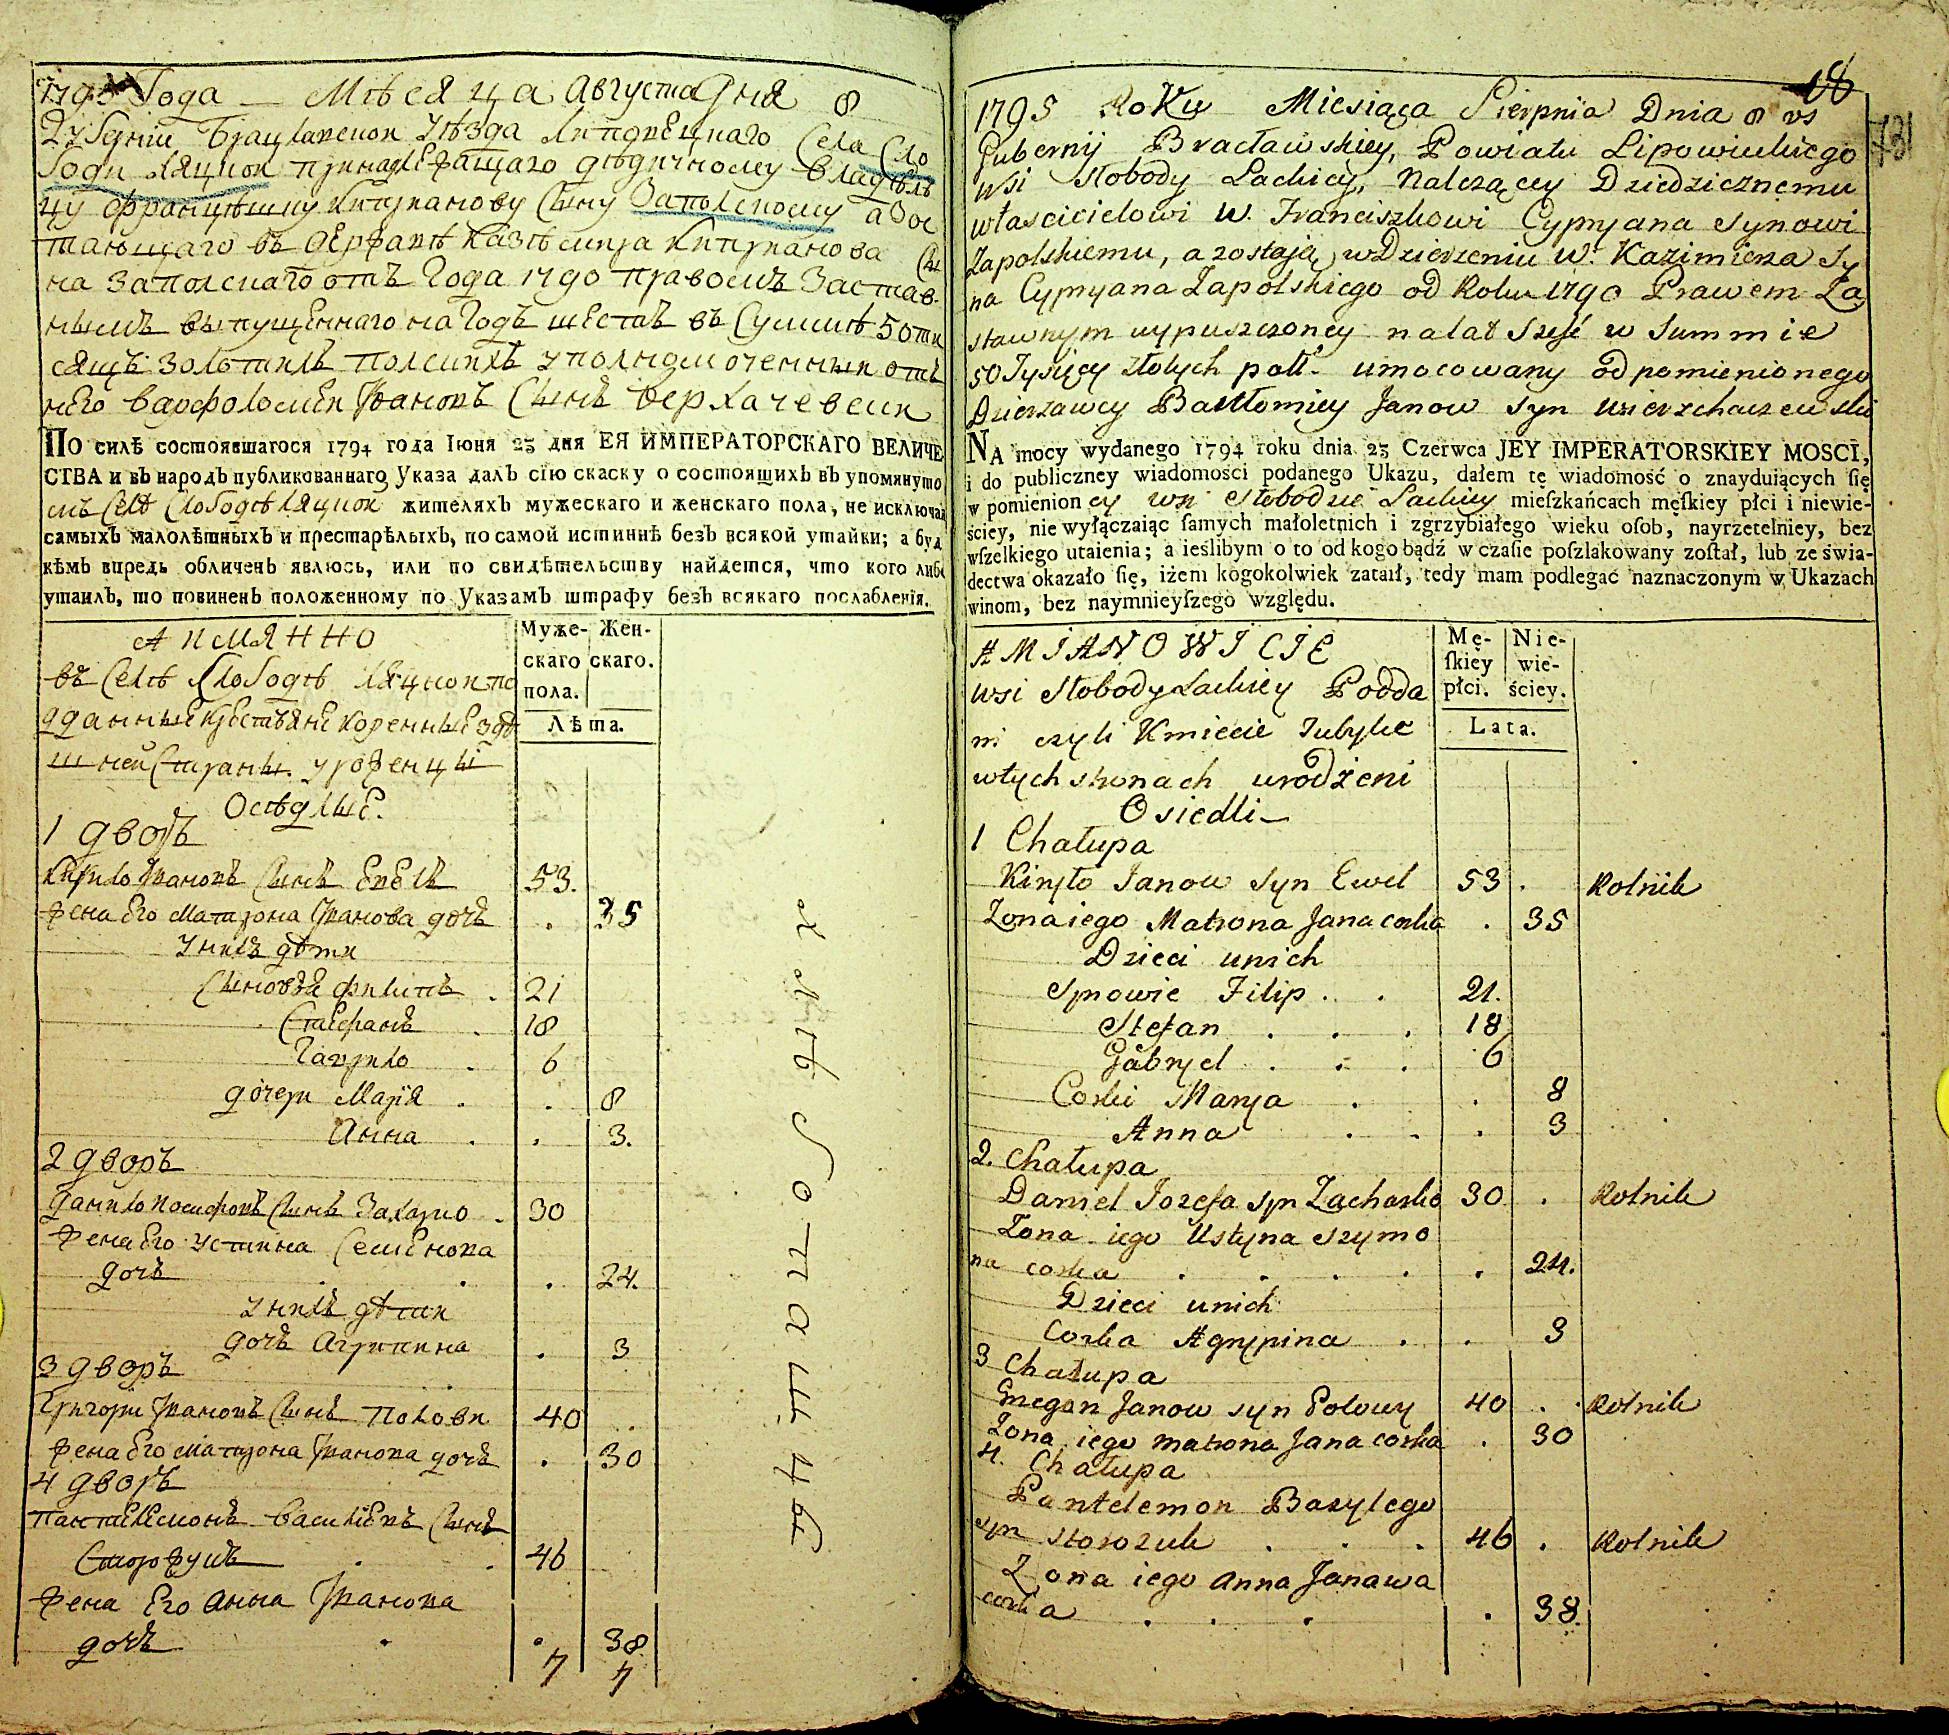 1795 Года Мѣсяца Августа Дня 8
Губерніи Брацлавской уѣзда Липовецкаго Села Сло
боди Ляцкой принадлежащаго дѣдичному владѣль
цу Францѣшку Кипріанову Сыну Запольскому а зос
тающаго въ держанѣ Казѣмира Кипріанова Сы
на Запольскаго отъ Года 1790 правомъ Застав
нымъ выпущеннаго на Годъ шесть въ Суммѣ 50 ти
сящъ Золотихъ полскихъ уполномоченный отъ
него Варфоломей Ивановъ Сынъ Верхачевский
ПО силѣ состоявшагося 1794 года Іюня 23 дня ЕЯ ИМПЕРАТОРСКАГО ВЕЛИЧЕ
СТВА и въ народъ публикованнаго Указа далъ сію скаску о состоящихъ въ упомянуто
мъ Селѣ Слободѣ Ляцкой жителяхъ мужескаго и женскаго пола, не исключая
самыхъ малолѣтныхъ и престарѣлыхъ, по самой истиннѣ безъ всякой утайки; а буд
кѣмъ впредь обличенъ явлюсь, или по свидѣтельству найдется, что кого либо
утаилъ, то повиненъ положенному по Указамъ штрафу безъ всякаго послабленія.
А имянно
въ Селѣ Слободѣ Ляцкой по
дданные крестьяне коренные здѣ
шней Страны уроженцы
Осѣдлые.
Муже- Жен-
скаго скаго.
пола.
Лѣта.
1 дворъ
Кирило Ивановъ Сынъ Евелъ 53.
жена Его Матрона Иванова дочъ . 35
У нихъ дѣти
Сыновья Филипъ . 21
Стефанъ . 18
Гаврило . 6
дочери Марія . . 8
Анна . . 3.
2 дворъ
Данило Иосифовъ Сынъ Захарко . 30
жена Его Устина Семенова
дочъ . . . 24.
У нихъ дѣти
дочъ Агрипина . 3
3 дворъ
Григори Ивановъ Сынъ Полови 40
жена Его Матрона Иванова дочъ . 30
4 дворъ
Пантелемонъ Василіевъ Сынъ
Сторожукъ . . 46
жена Его Анна Иванова
дочъ . . 38
7 7
18
731
1795 Roku Miesiąca Sierpnia Dnia 8 vs
Gubernij Bracławskiey, Powiatu Lipowieckiego
wsi Słobody Lackiey, należącey Dziedzicznemu
własciciełowi W. Franciszkowi Cypryana synowi
Zapolskiemu, a zostają w Dzierżeniu W. Kazimierza Sy
na Cypryana Zapolskiego od Roku 1790 Prawem Za
stawnym wypuszczoney na lat sześć w Summie
50 Tysięcy złotych polł. umocowany od pomienionego
Dzierżawcy Bartłomiey Janow syn Wierzchaczewski
NA mocy wydanego 1794 roku dnia 23 Czerwca JEY IMPERATORSKIEY MOSCI,
i do publiczney wiadomości podanego Ukazu, dałem tę wiadomość o znayduiących ſię
w pomienion ey wsi Słobodzie Lackiey mieſzkańcach męſkiey płci i niewie-
ściey, nie wyłączaiąc ſamych małoletnich i zgrzybiałego wieku oſob, nayrzetelniey, bez
wſzelkiego utaienia; a ieślibym o to od kogo bądź w czaſie poſzlakowany zoſtał, lub ze świa-
dectwa okazało ſię, iżem kogokolwiek zataił, tedy mam podlegać naznaczonym w Ukazach
winom, bez naymnieyſzego względu.
A MIANOWICIE
wsi Słobody Lackiey Podda
ni czyli Kmiecie Tubylce
w tych stronach urodzeni
Osiedli
Mę- Nie-
ſkiey wie-
płci. ściey.
Lata.
1 Chałupa
Kiryło Janow syn Ewel 53 . Rolnik
Zona iego Matrona Jana corka . 35
Dzieci u nich
Synowie Filip . . 21.
Stefan . . . 18
Gabryel . . . 6
Corki Marya . . 8
Anna . . . 3
2. Chałupa
Daniel Jozefa syn Zacharko 30 . Rolnik
Zona iego Ustyna Szymo
na corka . . . . . . 24.
Dzieci u nich
Corka Agrypina . . 3
3 Chałupa
Gregori Janow syn Połowy 40 . Rolnik
Zona iego Matrona Jana corka . 30
4. Chałupa
Pantelemon Bazylego
syn Storozuk . . . 46 . Rolnik
Zona iego Anna Janowa
corka . . . . 38.